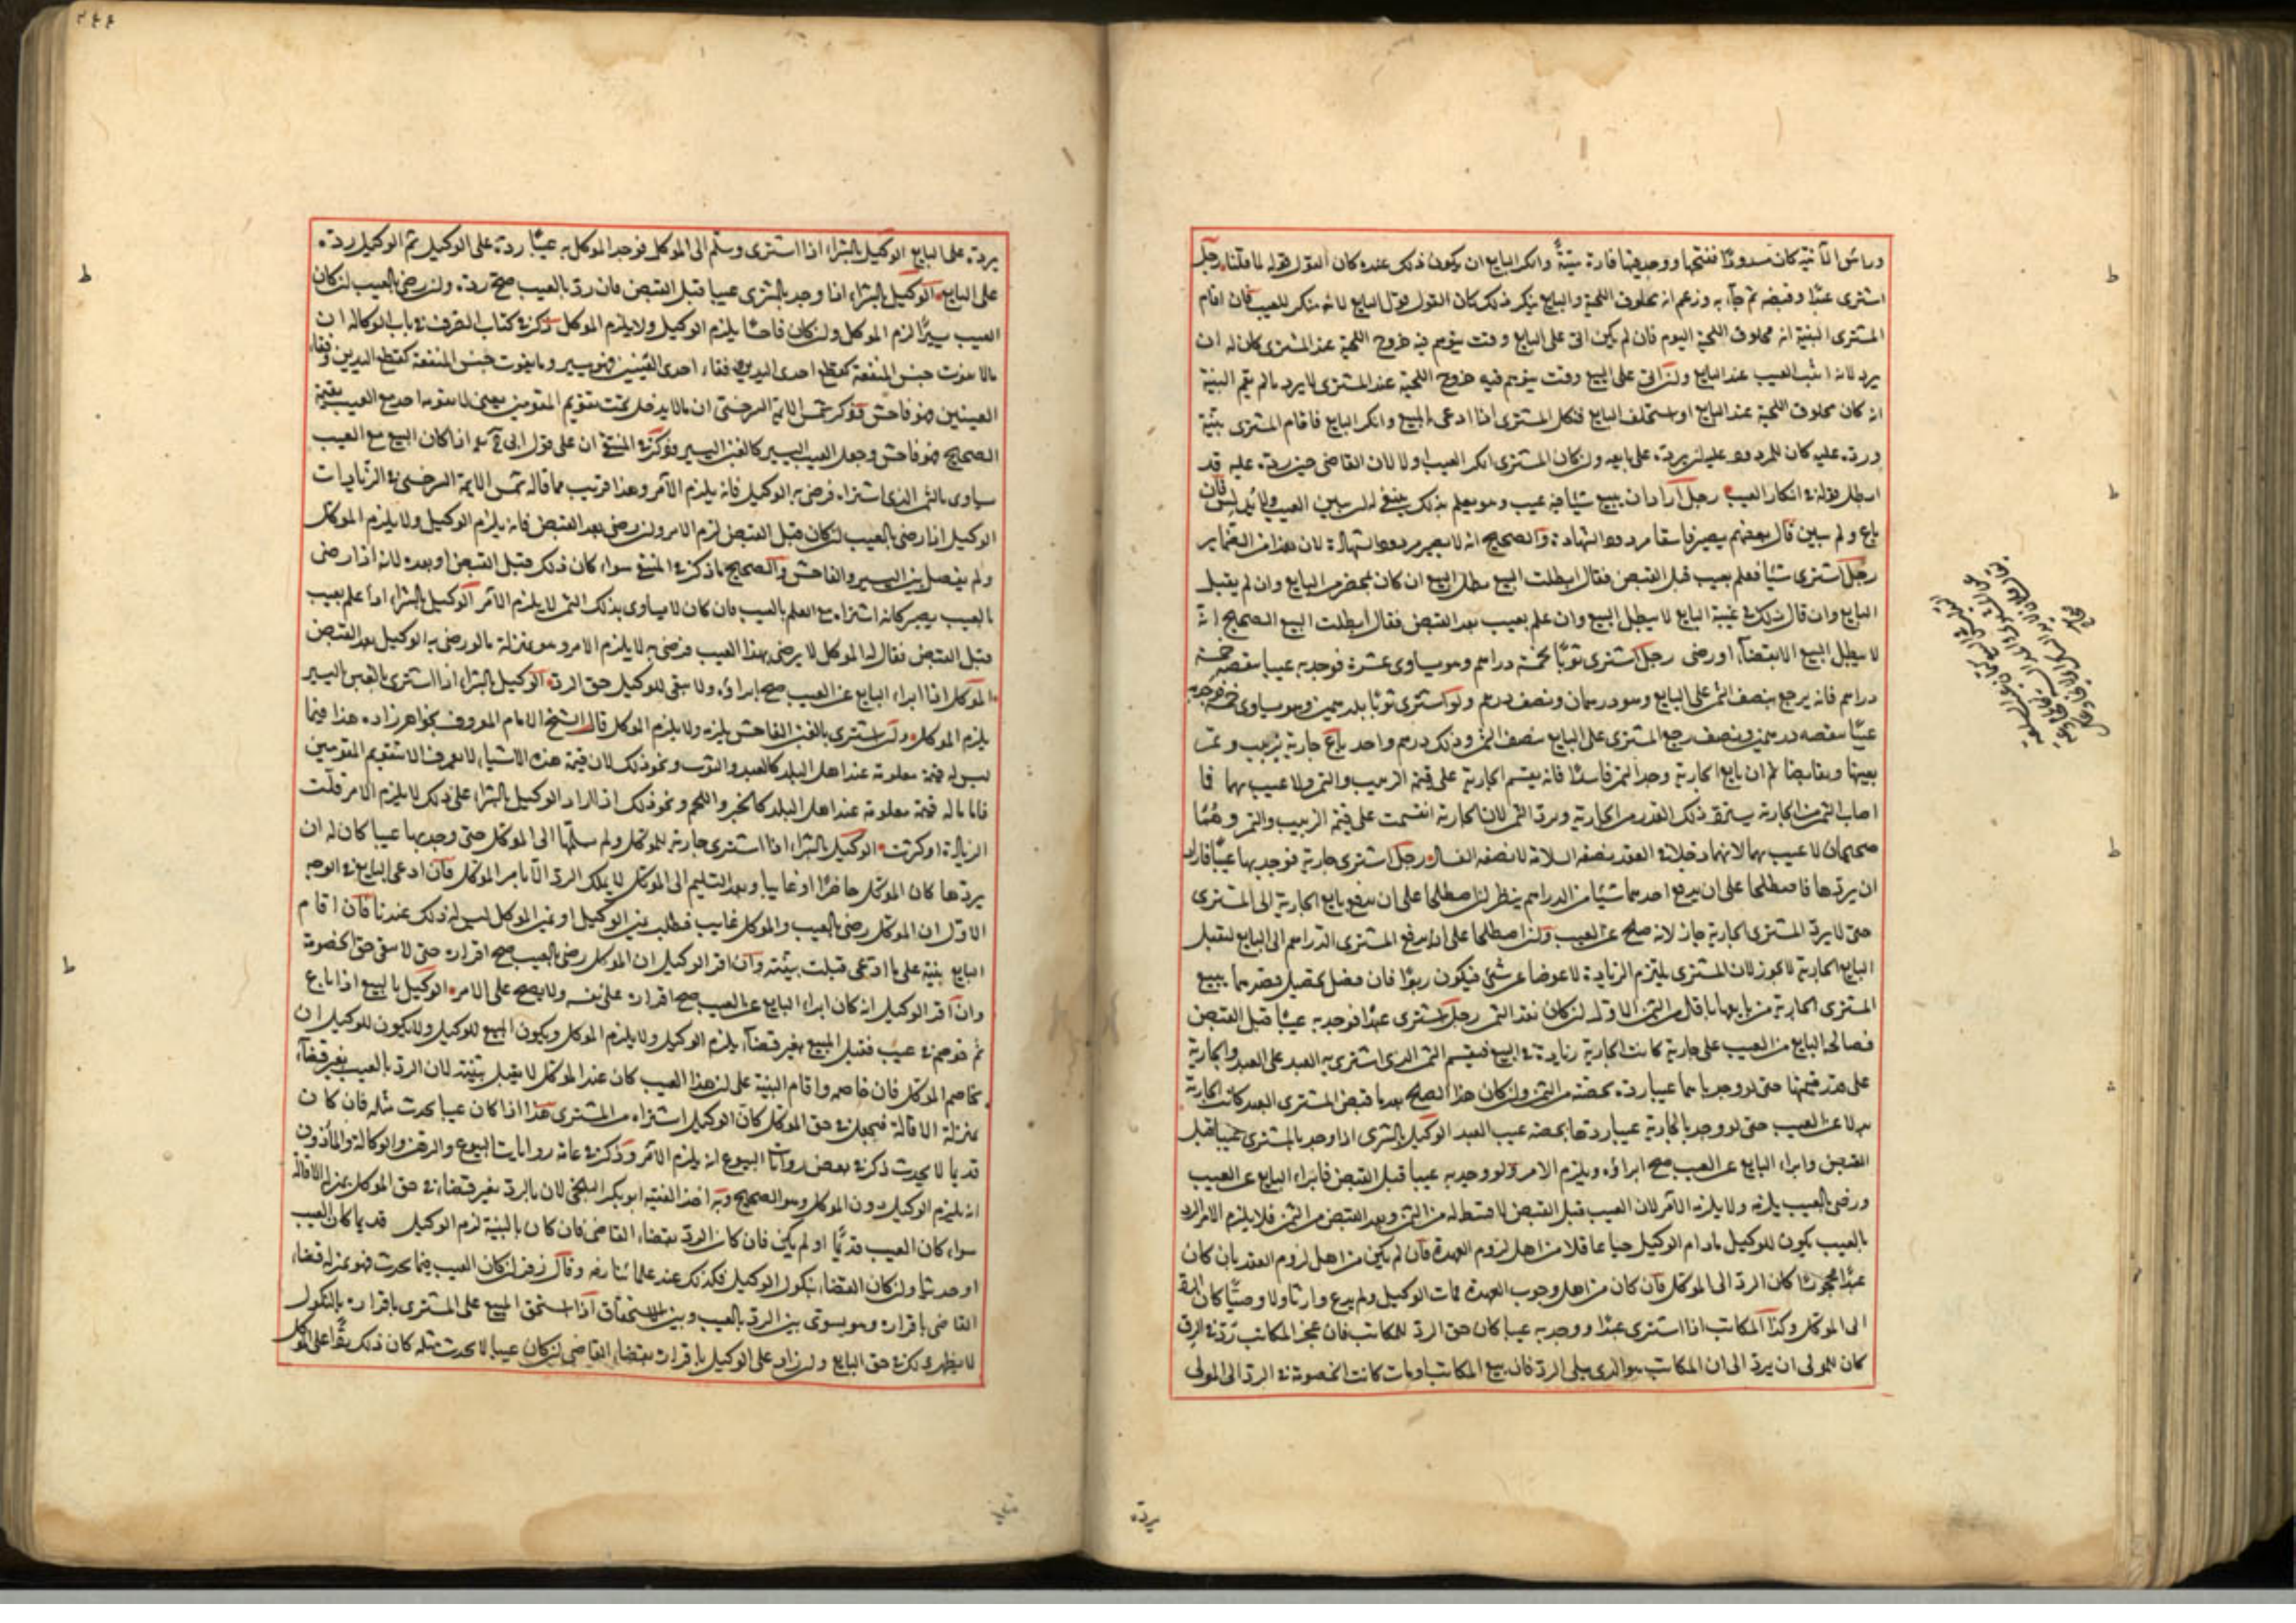 وراس الآنية كان مسدودا ففتحها ووجد فيها فارة ميتة وانكر البايع ان يكون ذلك عنده كان القول قوله لما قلنا رجل
اشترى عبدا وقبضه ثم جآء به وزعم انه محلوق اللحية والبايع ينكر ذلك كان القول قول البايع لانه منكر للعيب فان اقام
المشترى البينة انه محلوق اللحية اليوم فان لم يكن اتى على البايع وقت يتوهم فيه خروج اللحية عند المشترى كان له ان
يرد لانه اثبت العيب عند البايع وان اتى على البيع وقت يتوهم فيه خروج اللحية عند المشترى لا يرد مالم يقم البينة
انه كان محلوق اللحية عند البايع او استحلف البايع فنكل المشترى اذا ادعى المبيع وانكر البايع فاقام المشترى بينة
ورده عليه كان للمردود عليه ان يرده على بايعه وان كان المشترى انكر العيب اولا لان القاضى حين رده عليه قد
ابطل قوله في انكار العيب رجل اراد ان يبيع شيئا فيه عيب وهو يعلم بذلك ينبغى له ان يبين العيب ولا يدلس فان
باع ولم يبين قال بعضهم يصير فاسقا مردود الشهادة والصحيح انه لا يصير مردود الشهادة لان هذا من الصغاير
رجل اشترى شيئا فعلم بعيب قبل القبض فقال ابطلت البيع بطل البيع ان كان بمحضر من البايع وان لم يقبل
البايع وان قال ذلك في غيبة البايع لا يبطل البيع وان علم بعيب بعد القبض فقال ابطلت البيع الصحيح انه
لا يبطل البيع الا بقضآء او رضى رجل اشترى ثوبا بخمسة دراهم وهو يساوى عشرة فوجد به عيبا ينقصه خمسة
دراهم فانه يرجع بنصف الثمن على البايع وهو درهمان ونصف درهم ولو اشترى ثوبا بدرهمين وهو يساوى خمسة فوجد به
عيبا ينقصه درهمين ونصف رجع المشترى على البايع بنصف الثمن وذلك درهم واحد باع جارية بزبيب وتمر
بعينها وتقابضا ثم ان بايع الجارية وجد التمر فاسدا فانه يقسم الجارية على قيمة الزبيب والتمر ولا عيب بهما فما
اصاب التمر من الجارية يسترد ذلك القدر من الجارية ويرد التمر لان الجارية انقسمت على قيمة الزبيب والتمر وهما
صحيحان لا عيب بهما لانهما دخلا في العقد بصفة السلامة لا بصفة الفساد رجل اشترى جارية فوجد بها عيبا فاراد
ان يردها فاصطلحا على ان يدفع احدهما شيئا من الدراهم ينظر ان اصطلحا على ان يدفع بايع الجارية الى المشترى
حتى لا يرد المشترى الجارية جاز لانه صلح عن العيب وان اصطلحا على ان يدفع المشترى الدراهم الى البايع ليقبل
البايع الجارية لا يجوز لان المشترى يلتزم الزيادة لا عوضا عن شئ فيكون ربوا فان فضل تحصيل قصدهما يبيع
المشترى الجارية من بايعها باقل من الثمن الاول ان كان نقد الثمن رجل اشترى عبدا فوجد به عيبا قبل القبض
فصالحه البايع من العيب على جارية كانت الجارية زيادة في البيع فيقسم الثمن الذى اشترى به العبد على العبد والجارية
على قدر قيمتهما حتى لو وجد باحدهما عيبا رده بحصته من الثمن وان كان هذا الصلح بعد ما قبض المشترى العبد كانت الجارية
بدلا عن العيب حتى لو وجد بالجارية عيبا ردها بحصة عيب العبد الوكيل بالشرى اذا وجد بالمشترى عيبا قبل
القبض وابراء البايع عن العيب صح ابراؤه ويلزم الامر ولو وجد به عيبا قبل القبض فابراء البايع عن العيب
ورضى بالعيب يلزمه ولا يلزم الآمر لان العيب قبل القبض لا قسط له من الثمن وبعد القبض من الثمن فلا يلزم الامر الرد
بالعيب يكون للوكيل مادام الوكيل حيا عاقلا من اهل لزوم العهدة فان لم يكن من اهل لزوم العقد بان كان
عبدا محجورا كان الرد الى الموكل فان كان من اهل وجوب العهدة فمات الوكيل ولم يدع وارثا ولا وصيا كان الرد
الى الموكل وكذا المكاتب اذا اشترى عبدا ووجد به عيبا كان حق الرد للمكاتب فان عجز المكاتب ورد في الرق
كان للمولى ان يرد الى ان المكاتب هو الذى يلى الرد فان بيع المكاتب او مات كانت الخصومة في الرد الى المولى
يرده
يرده على البايع الوكيل بالشراء اذا اشترى وسلم الى الموكل فوجد الموكل به عيبا رده على الوكيل ثم الوكيل رده
على البايع الوكيل بالشراء اذا وجد بالشرى عيبا قبل القبض فان رد بالعيب صح رده وان رضى بالعيب ان كان
العيب يسيرا لزم الموكل وان كان فاحشا يلزم الوكيل ولا يلزم الموكل ذكر في كتاب الصرف في باب الوكالة ان
مالا يفوت جنس المنفعة كقطع احدى اليدين وفقاء احدى العينين فهو يسير وما يفوت جنس المنفعة كقطع اليدين وفقاء
العينين فهو فاحش وذكر شمس الايمة السرخسى ان مالا يدخل تحت تقويم المقومين يعنى لا يقومه احد مع العيب بقيمة
الصحيح فهو فاحش وجعل العيب اليسير كالغبن اليسير وذكر في المنتقى ان على قول ابى ح اذا كان البيع مع العيب
يساوى بالثمن الذى اشتراه فرضى به الوكيل فانه يلزم الآمر وهذا قريب مما قاله شمس الايمة السرخسى في الزيادات
الوكيل اذا رضى بالعيب ان كان قبل القبض لزم الامر وان رضى بعد القبض فانه يلزم الوكيل ولا يلزم الموكل
ولم يفصل بين اليسير والفاحش والصحيح ما ذكر في المنتقى سواء كان ذلك قبل القبض او بعده لانه اذا رضى
بالعيب يصير كانه اشتراه مع العلم بالعيب فان كان لا يساوى بذلك الثمن لا يلزم الآمر الوكيل بالشراء اذا علم بعيب
قبل القبض فقال له الموكل لا يرضى بهذا العيب فرضى به لا يلزم الامر وهو بمنزلة مالو رضى به الوكيل بعد القبض
الموكل اذا ابراء البايع عن العيب صح ابراؤه ولا يبقى للوكيل حق الرد الوكيل بالشراء اذا اشترى بالغبن اليسير
يلزم الموكل وان اشترى بالغبن الفاحش يلزمه ولا يلزم الموكل قال الشيخ الامام المعروف بخواهر زاده هذا فيما
ليس له قيمة معلومة عند اهل البلد كالعبد والثوب ونحو ذلك لان قيمة هذه الاشياء لا تعرف الا بتقويم المقومين
فاما ماله قيمة معلومة عند اهل البلد كالخبز واللحم ونحو ذلك اذا زاد الوكيل بالشراء على ذلك لا يلزم الامر قلت
الزيادة او كثرت الوكيل بالشراء اذا اشترى جارية للموكل ولم يسلمها الى الموكل حتى وجد بها عيبا كان له ان
يردها كان الموكل حاضرا او غايبا وبعد التسليم الى الموكل لا يملك الرد الا بامر الموكل فان ادعى البايع في الوجه
الاول ان الموكل رضى بالعيب والموكل غايب فطلب يمين الوكيل او يمين الموكل ليس له ذلك عندنا فان اقام
البايع بينة على ما ادعى قبلت بينته وان اقر الوكيل ان الموكل رضى بالعيب صح اقراره حتى لا يبقى حق الخصومة
وان اقر الوكيل انه كان ابراء البايع عن العيب صح اقراره على نفسه ولا يصح على الامر الوكيل بالبيع اذا باع
ثم خوصم في عيب فقبل المبيع بغير قضآء يلزم الوكيل ولا يلزم الموكل ويكون المبيع للوكيل ولا يكون للوكيل ان
يخاصم الموكل فان خاصمه واقام البينة على ان هذا العيب كان عند الموكل لا يقبل بينته لان الرد بالعيب بغير قضآء
بمنزلة الاقالة فيجعل في حق الموكل كان الوكيل اشتراه من المشترى هذا اذا كان عيبا يحدث مثله فان كان
قديما لا يحدث ذكر في بعض روايات البيوع انه يلزم الآمر وذكر في عامة روايات البيوع والرهن والوكالة والمأذون
انه يلزم الوكيل دون الموكل وهو الصحيح وبه اخذ الفقيه ابو بكر البلخى لان بالرد بغير قضاء في حق الموكل بمنزلة الاقالة
سواء كان العيب قديما او لم يكن فان كان الرد بقضاء القاضى فان كان بالبينة لزم الوكيل قديما كان العيب
او حديثا وان كان القضاء بنكول الوكيل فكذلك عند علمائنا رض وقال زفر ان كان العيب مما يحدث فهو بمنزلة قضاء
القاضى باقراره وهو يسوى بين الرد بالعيب وبين الاستحقاق اذا استحق المبيع على المشترى باقراره بالنكول
لا يظهر ذلك في حق البايع وان رد على الوكيل باقراره بقضاء القاضى ان كان عيبا لا يحدث مثله كان ذلك ردا على الموكل